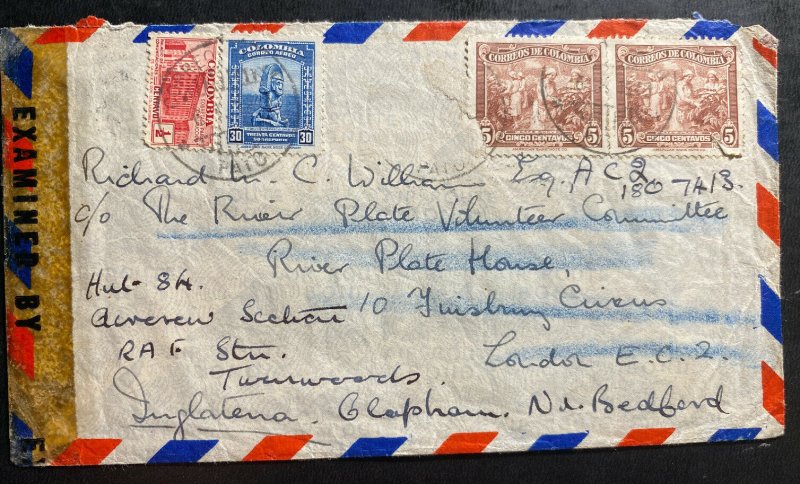 EXAMINED BY
COLOMBIA
1/2
COLOMBIA
CORREO AEREO
30 TREINTA CENTAVOS 30
CORREOS DE COLOMBIA
5 CINCO CENTAVOS 5
CORREOS DE COLOMBIA
5 CINCO CENTAVOS 5
Richard C. Williams Esq. A C 2
c/o The River Plate Volunteer Committee
River Plate House,
Hut 84.
10 Finsbury Circus
Aircrew Section
London E.C.2.
RAF Stn.
Twinwoods.
Inglaterra. Clapham. Nr. Bedford